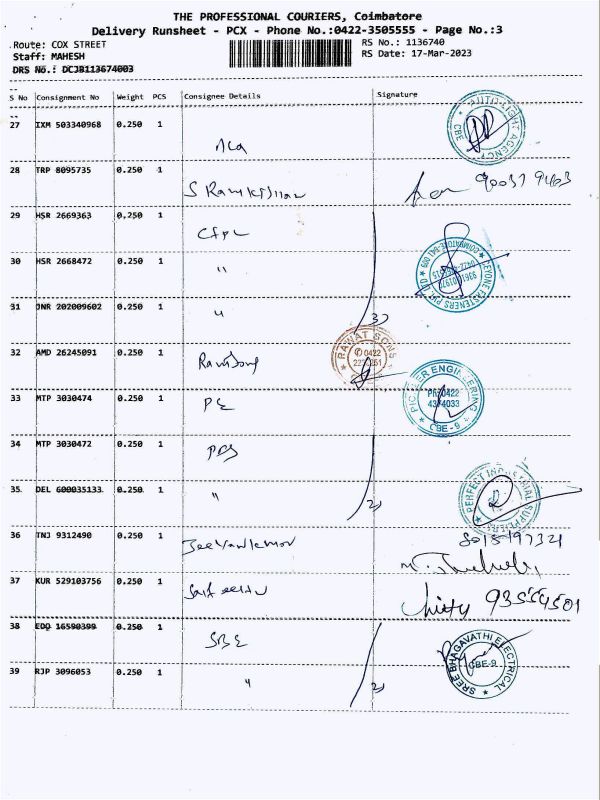 THE PROFESSIONAL COURIERS, Coimbatore
Delivery Runsheet - PCX - Phone No.:0422-3505555 - Page No.:3
Route: COX STREET
RS No.: 1136740
Staff: MAHESH
RS Date: 17-Mar-2023
DRS No.: DCJB113674003
S No Consignment No Weight PCS Consignee Details Signature
27 IXM 503340968 0.250 1
AUTO LIGHT AGENCY CBE
28 TRP 8095735 0.250 1
S Ramkrishnan
29 HSR 2669363 0.250 1
30 HSR 2668472 0.250 1
"
31 JNR 202009602 0.250 1
"
3)
32 AMD 26245091 0.250 1
RAWAT SONS 0422
33 MTP 3030474 0.250 1
PE
ENGINEERING
Ph: 0422
CBE - 9
34 MTP 3030472 0.250 1
35 DEL 600035133 0.250 1
"
2)
PERFECT INDUSTRIAL SUPPLIERS
36 TNJ 9312490 0.250 1
8015197321
37 KUR 529103756 0.250 1
38 EDQ 16590399 0.250 1
SBE
SREE BHAGAVATHI ELECTRICAL
CBE-9
39 RJP 3096053 0.250 1
"
2)